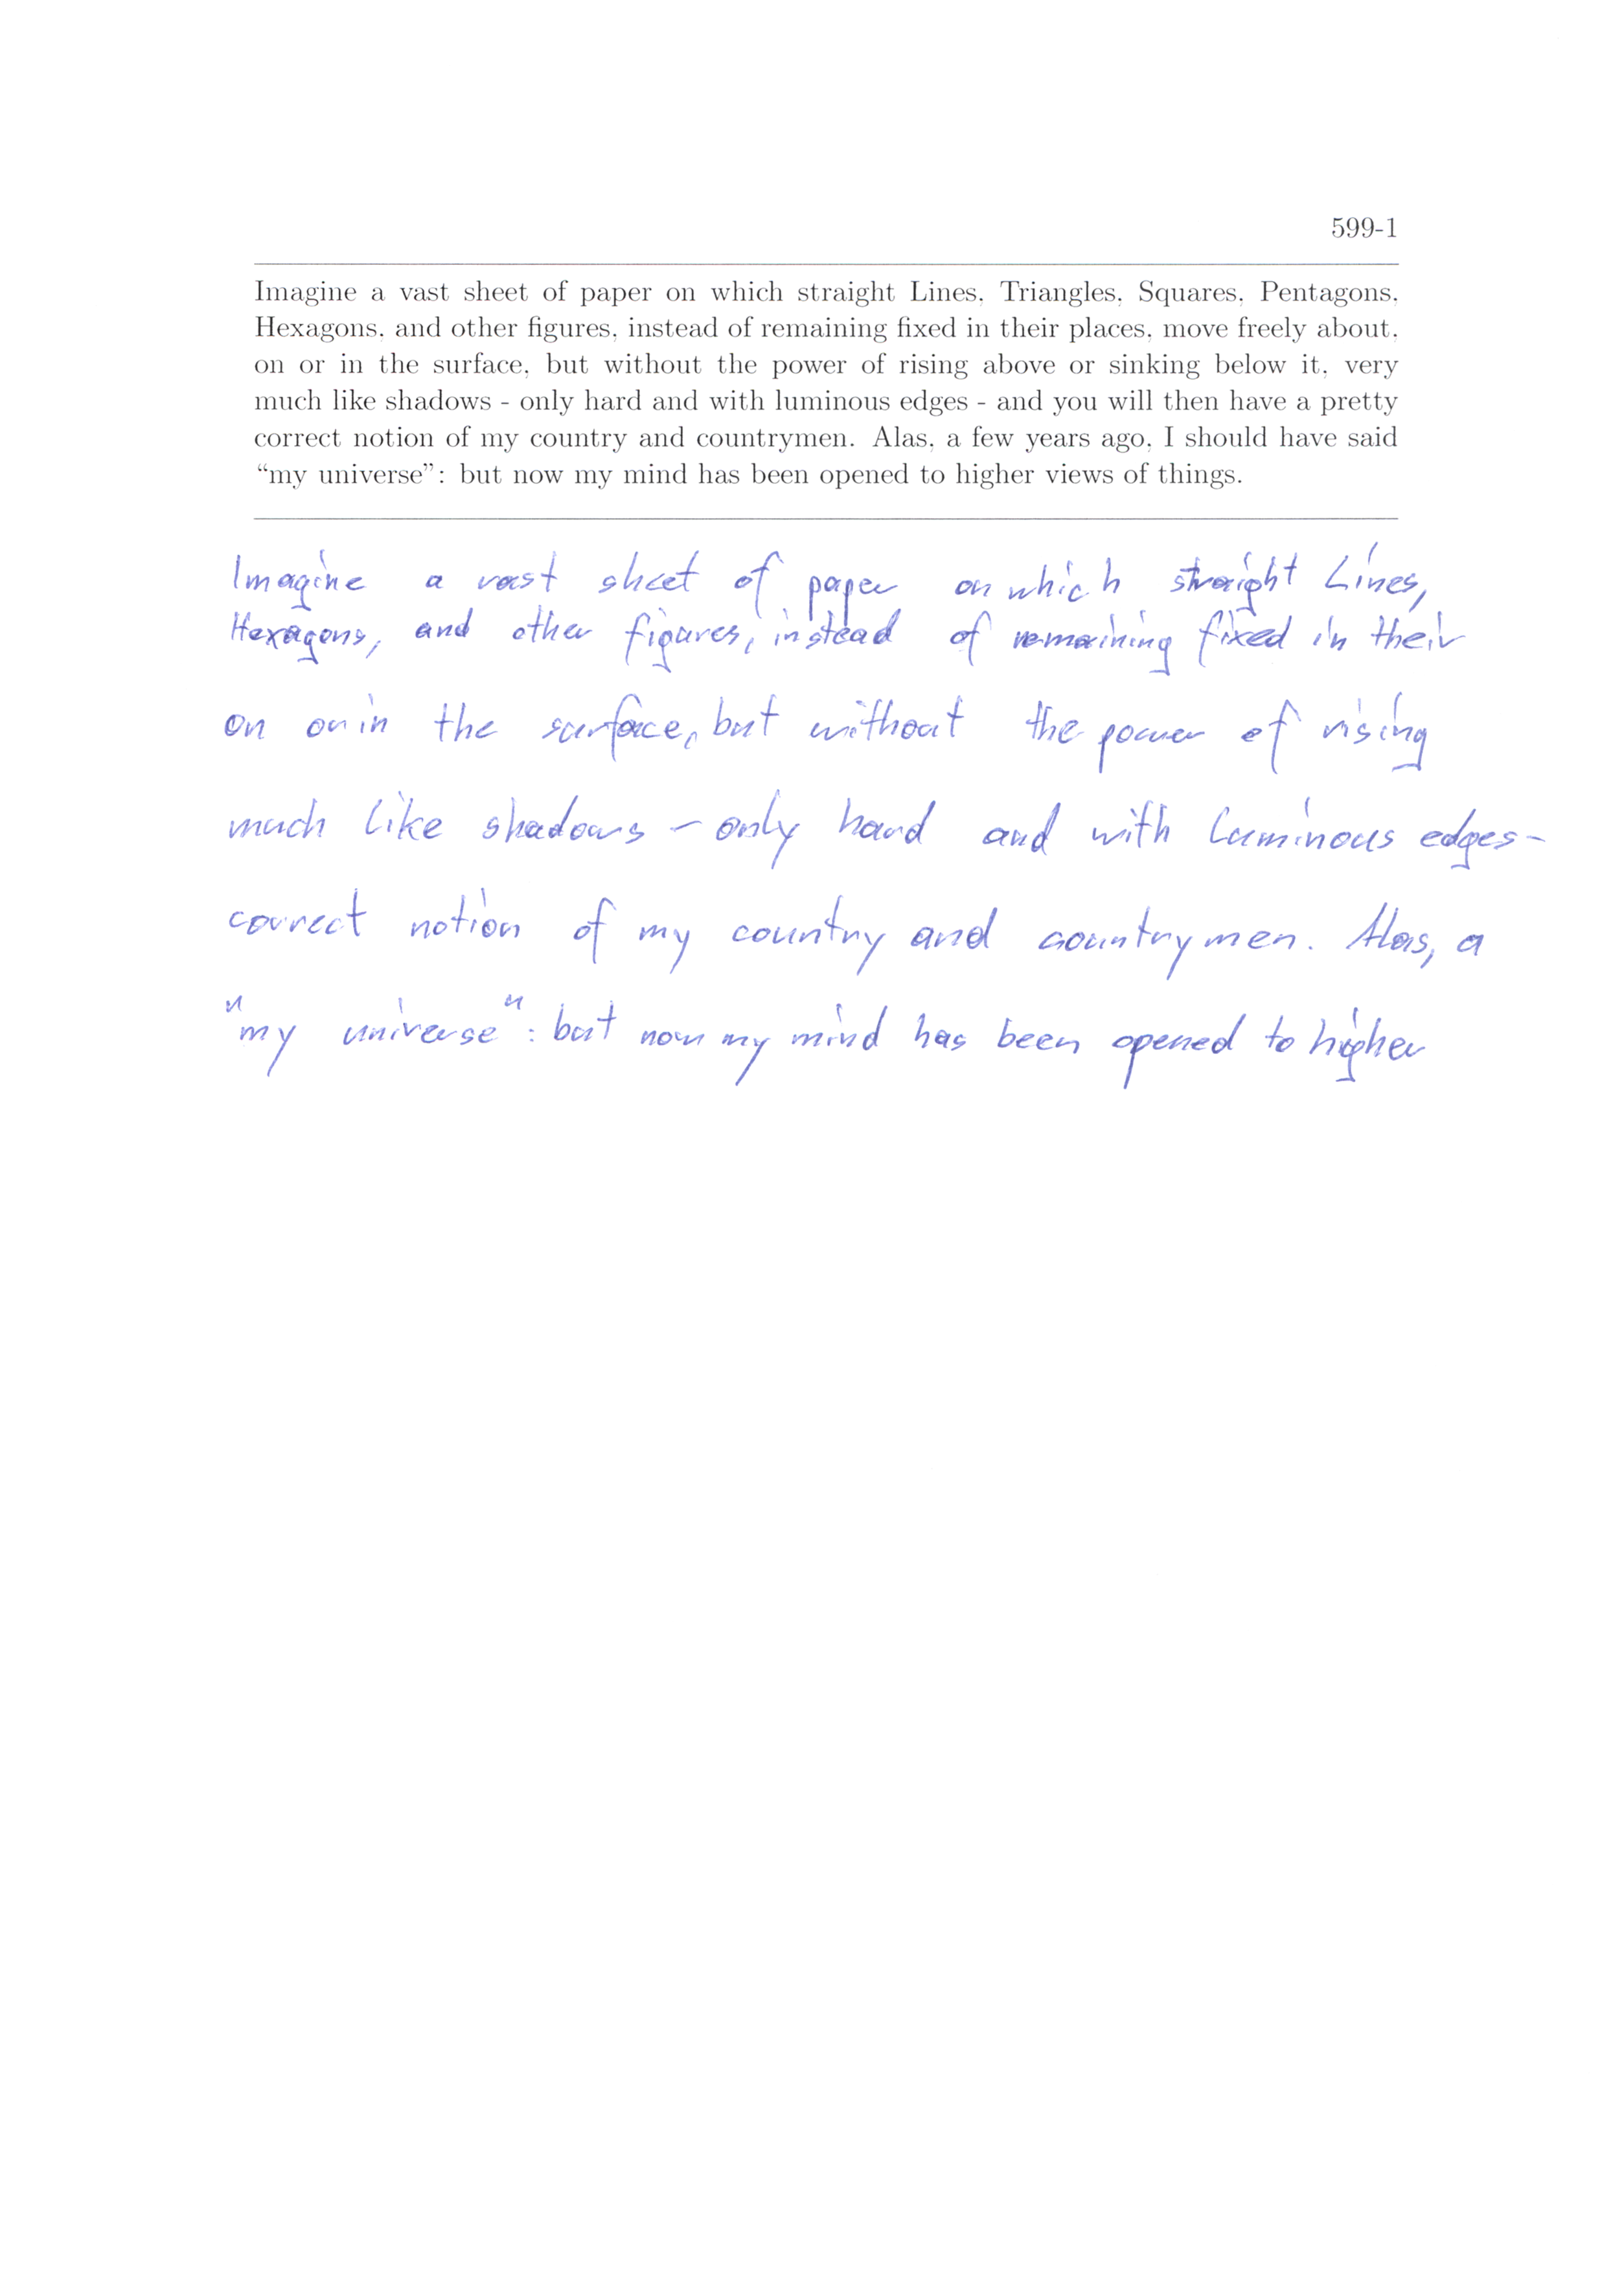 599-1
Imagine a vast sheet of paper on which straight Lines, Triangles, Squares, Pentagons,
Hexagons, and other figures, instead of remaining fixed in their places, move freely about,
on or in the surface, but without the power of rising above or sinking below it, very
much like shadows - only hard and with luminous edges - and you will then have a pretty
correct notion of my country and countrymen. Alas, a few years ago, I should have said
“my universe”: but now my mind has been opened to higher views of things.
Imagine a vast sheet of paper on which straight Lines,
Hexagons, and other figures, instead of remaining fixed in their
on or in the surface, but without the power of rising
much like shadows - only hard and with luminous edges -
correct notion of my country and countrymen. Alas, a
"my universe": but now my mind has been opened to higher